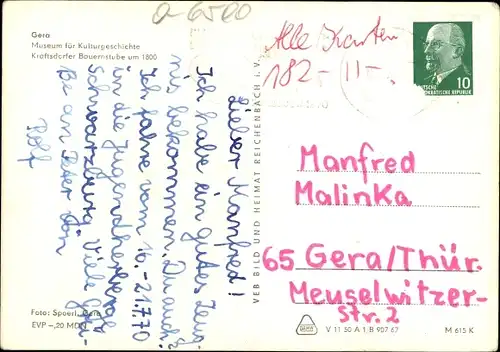 0-6500
Gera
Museum für Kulturgeschichte
Kraftsdorfer Bauernstube um 1800
Alle Karten
182,- 11-.
DEUTSCHE
DEMOKRATISCHE REPUBLIK
10
Lieber Manfred!
Ich habe ein gutes Zeug-
nis bekommen. Du auch?
Ich fahre vom 16.-21.7.70
in die Jugendherberge
Schwarzburg. Viele Grü-
ße an Peter
Rolf
VEB BILD UND HEIMAT REICHENBACH I. V.
Manfred
Malinka
65 Gera/Thür.
Meuselwitzer-
Str. 2
Foto: Spoerl, Gera
EVP -,20 MDN
V 11 50 A 1 B 907 67
M 615 K